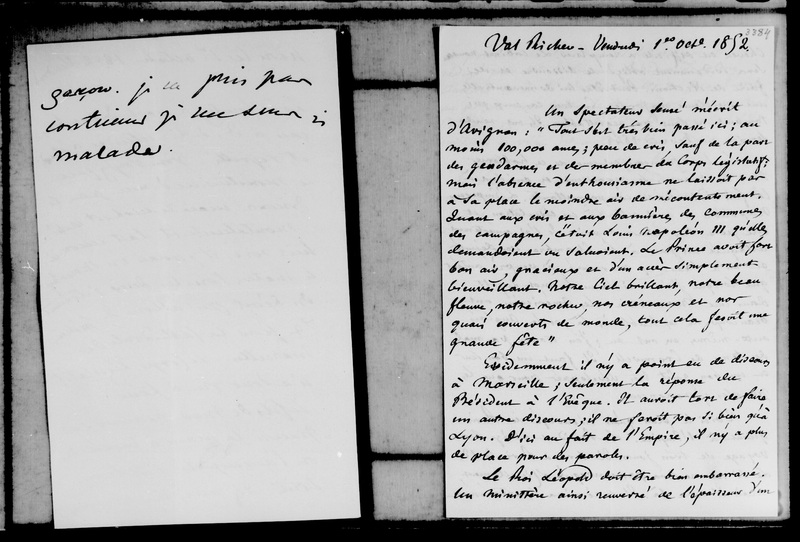 garçon. je ne puis pas
continuer je me sens si
malade.
3384
Val Richer - Vendredi 1er Octe. 1852.
Un spectateur sensé m'écrit
d'Avignon : "Tout s'est très bien passé ici ; au
moins 100,000 ames ; peu de cris, sauf de la part
des gendarmes et des membres du Corps législatif ;
mais l'absence d'enthousiasme ne laissoit pas
à sa place le moindre air de mécontentement.
Quant aux cris et aux bannières des communes
des campagnes, c'étoit Louis Napoléon III qu'elles
demandoient ou saluoient. Le Prince avoit fort
bon air, gracieux et d'un accès simplement
bienveillant. Notre Ciel brillant, notre beau
fleuve, notre rocher, nos créneaux et nos
quais couverts de monde, tout cela fesoit une
grande fête"
Evidemment il n'y a point eu de discours
à Marseille ; seulement la réponse du
Président à l'Evêque. Il auroit tort de faire
un autre discours ; il ne feroit pas si bien qu'à
Lyon. D'ici au fait de l'Empire, il n'y a plus
de place pour des paroles.
Le Roi Léopold doit être bien embarrassé.
Un ministère ainsi renversé de l'épaisseur d'un